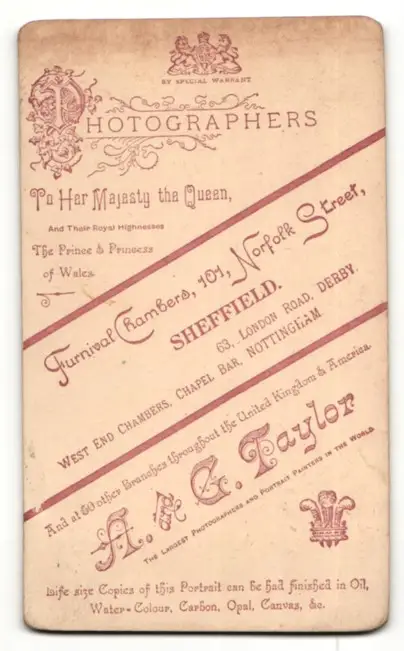 BY SPECIAL WARRANT
PHOTOGRAPHERS
To Her Majesty the Queen,
And Their Royal Highnesses
The Prince & Princess
of Wales.
Furnival Chambers, 101, Norfolk Street,
SHEFFIELD.
63, LONDON ROAD, DERBY.
WEST END CHAMBERS, CHAPEL BAR, NOTTINGHAM
And at 60 other Branches throughout the United Kingdom & America.
A. & G. Taylor
THE LARGEST PHOTOGRAPHERS AND PORTRAIT PAINTERS IN THE WORLD
Life size Copies of this Portrait can be had finished in Oil,
Water-Colour, Carbon, Opal, Canvas, &c.